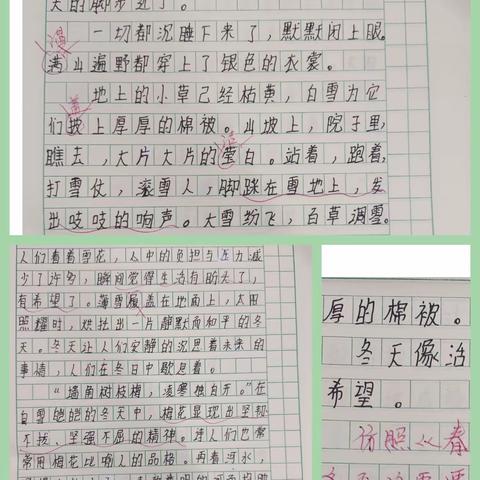 天的脚步近了。
一切都沉睡下来了，默默闭上眼。
满山遍野都穿上了银色的衣裳。
地上的小草已经枯黄，白雪为它
盖
们披上厚厚的棉被。山坡上，院子里，
瞧去，大片大片的莹白。站着，跑着，
打雪仗，滚雪人，脚踩在雪地上，发
出吱吱的响声。大雪纷飞，百草凋零。
人们看着雪花，心中的负担与压力减
少了许多，瞬间觉得生活有盼头了，
有希望了。薄雪覆盖在地面上，太阳
照耀时，烘托出一片静默而和平的冬
天。冬天让人们安静的沉思着未来的
事情，人们在冬日中歇息着。
“墙角树枝梅，凌寒独自开。”在
白雪皑皑的冬天中，梅花显现出坚韧
不拔、坚强不屈的精神。诗人们也常
常用梅花比喻人的品格。再看河水，
厚的棉被。
冬天像治
希望。
仿照《春